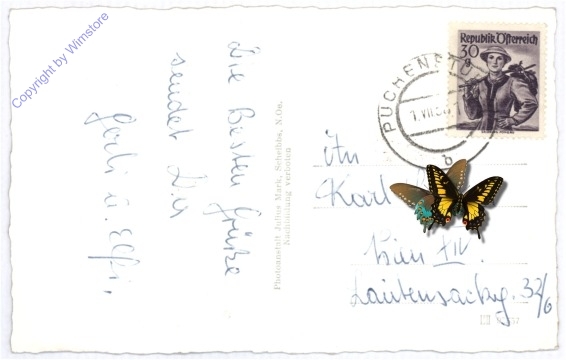 Copyright by Wimstore
Die Besten Grüße
sendet Dir
Gerli u. Elfi.
Photoanstalt Julius Mark, Scheibbs, N.Oe.
Nachbildung verboten
Republik Österreich
30 g
PUCHENSTU
1.VII.50
b
Karl
Wien XIV.
Lautensackg. 32/6